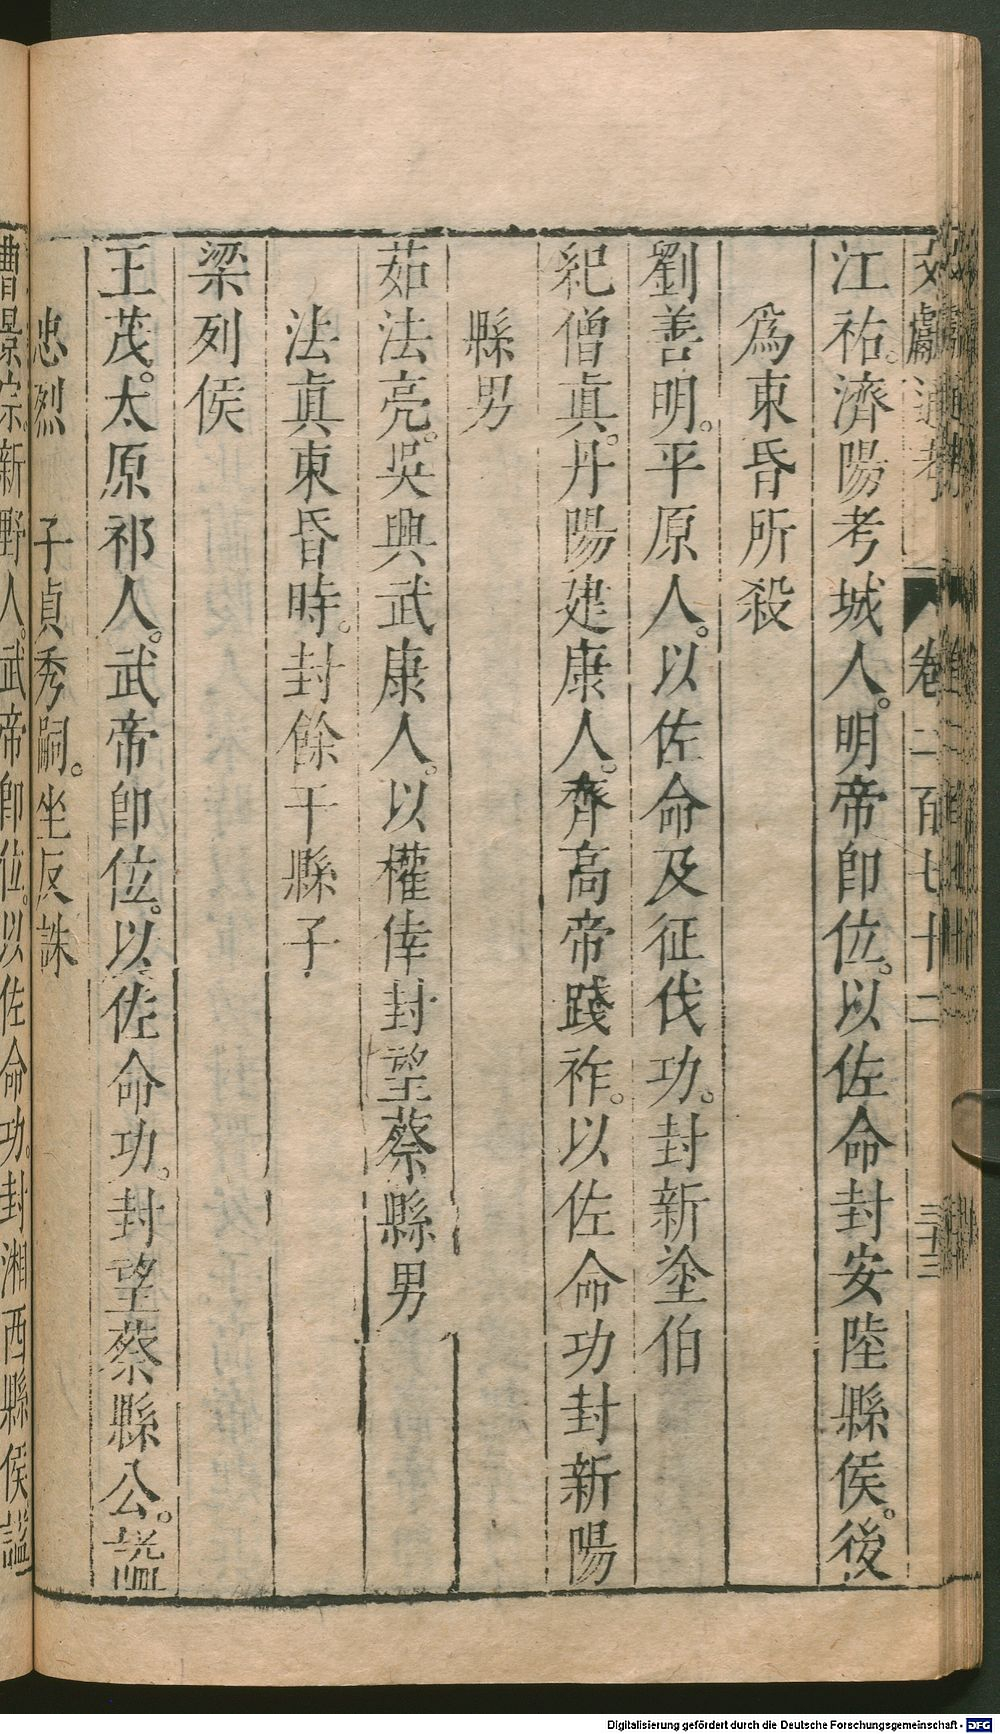 文獻通考 卷二百七十二 三十三
江祏。濟陽考城人。明帝卽位。以佐命封安陸縣侯。後
爲東昏所殺
劉善明。平原人。以佐命及征伐功。封新塗伯
紀僧眞。丹陽建康人。齊高帝踐祚。以佐命功封新陽
縣男
茹法亮。吳興武康人。以權倖封望蔡縣男
法眞東昏時。封餘干縣子
梁列侯
王茂。太原祁人。武帝卽位。以佐命功。封望蔡縣公。諡
忠烈 子貞秀嗣。坐反誅
曹景宗。新野人。武帝卽位。以佐命功。封湘西縣侯諡
Digitalisierung gefördert durch die Deutsche Forschungsgemeinschaft - DFG